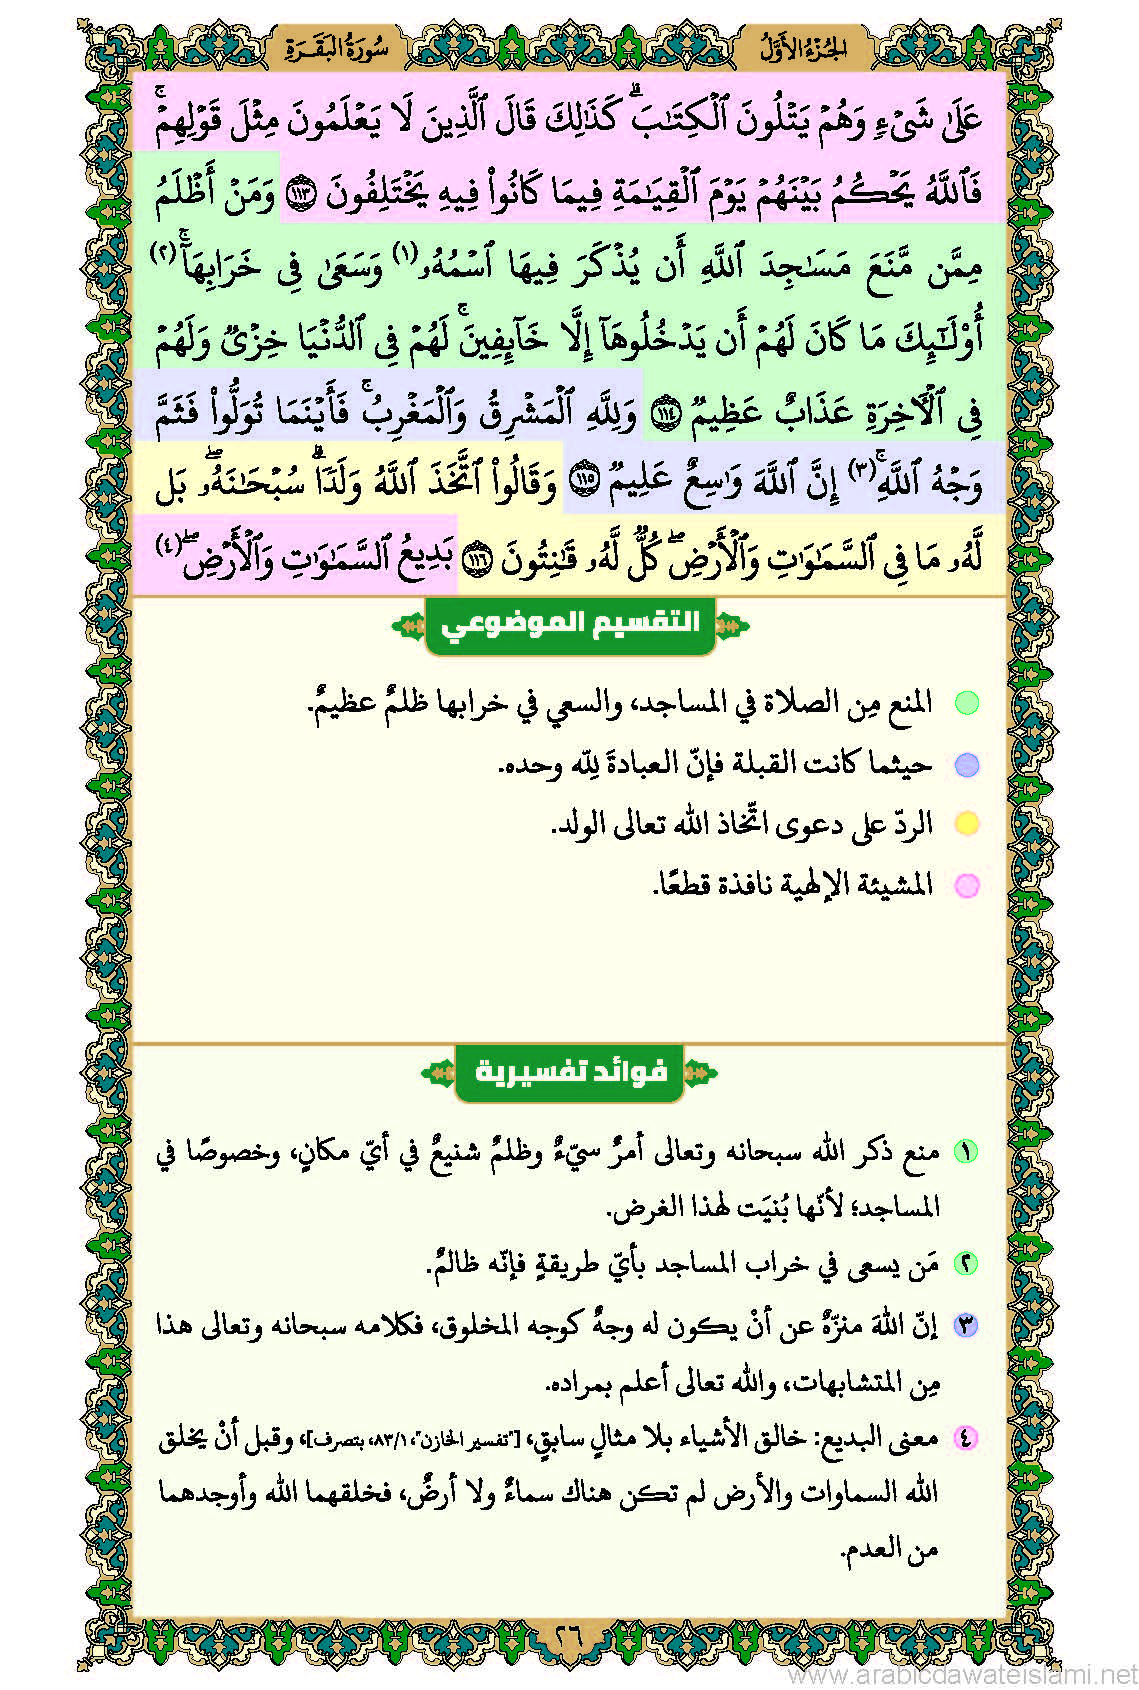 الجُزْءُ الأَوَّلُ
سُورَةُ البَقَرَةِ
عَلَىٰ شَىْءٍ وَهُمْ يَتْلُونَ ٱلْكِتَـٰبَ ۗ كَذَٰلِكَ قَالَ ٱلَّذِينَ لَا يَعْلَمُونَ مِثْلَ قَوْلِهِمْ ۚ
فَٱللَّهُ يَحْكُمُ بَيْنَهُمْ يَوْمَ ٱلْقِيَـٰمَةِ فِيمَا كَانُوا۟ فِيهِ يَخْتَلِفُونَ ﴿١١٣﴾ وَمَنْ أَظْلَمُ
مِمَّن مَّنَعَ مَسَـٰجِدَ ٱللَّهِ أَن يُذْكَرَ فِيهَا ٱسْمُهُۥ (١) وَسَعَىٰ فِى خَرَابِهَآ ۚ (٢)
أُو۟لَـٰٓئِكَ مَا كَانَ لَهُمْ أَن يَدْخُلُوهَآ إِلَّا خَآئِفِينَ ۚ لَهُمْ فِى ٱلدُّنْيَا خِزْىٌ وَلَهُمْ
فِى ٱلْـَٔاخِرَةِ عَذَابٌ عَظِيمٌ ﴿١١٤﴾ وَلِلَّهِ ٱلْمَشْرِقُ وَٱلْمَغْرِبُ ۚ فَأَيْنَمَا تُوَلُّوا۟ فَثَمَّ
وَجْهُ ٱللَّهِ ۚ (٣) إِنَّ ٱللَّهَ وَٰسِعٌ عَلِيمٌ ﴿١١٥﴾ وَقَالُوا۟ ٱتَّخَذَ ٱللَّهُ وَلَدًا ۗ سُبْحَـٰنَهُۥ ۖ بَل
لَّهُۥ مَا فِى ٱلسَّمَـٰوَٰتِ وَٱلْأَرْضِ ۖ كُلٌّ لَّهُۥ قَـٰنِتُونَ ﴿١١٦﴾ بَدِيعُ ٱلسَّمَـٰوَٰتِ وَٱلْأَرْضِ ۖ (٤)
التقسيم الموضوعي
المنع مِن الصلاة في المساجد، والسعي في خرابها ظلمٌ عظيمٌ.
حيثما كانت القبلة فإنّ العبادةَ لِلّه وحده.
الردّ على دعوى اتّخاذ الله تعالى الولد.
المشيئة الإلهية نافذة قطعًا.
فوائد تفسيرية
١ منع ذكر الله سبحانه وتعالى أمرٌ سيّءٌ وظلمٌ شنيعٌ في أيّ مكانٍ، وخصوصًا في
المساجد؛ لأنّها بُنيَت لهذا الغرض.
٢ مَن يسعى في خراب المساجد بأيّ طريقةٍ فإنّه ظالمٌ.
٣ إنّ اللهَ منزّهٌ عن أنْ يكون له وجهٌ كوجه المخلوق، فكلامه سبحانه وتعالى هذا
مِن المتشابهات، والله تعالى أعلم بمراده.
٤ معنى البديع: خالق الأشياء بلا مثالٍ سابقٍ، ["تفسير الخازن"، ٨٣/١، بتصرف]، وقبل أنْ يخلق
الله السماوات والأرض لم تكن هناك سماءٌ ولا أرضٌ، فخلقهما الله وأوجدهما
من العدم.
٢٦
www.arabicdawateislami.net